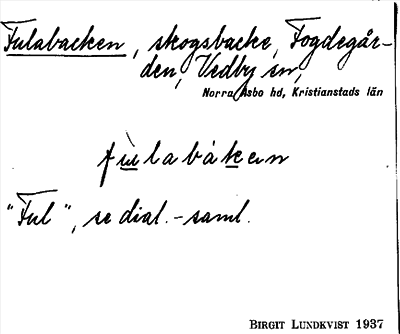 Fulabacken, skogsbacke, Fogdegår-
den, Vedby sn,
Norra Åsbo hd, Kristianstads län
fu̲labák̲en
"Ful", se dial.-saml.
BIRGIT LUNDKVIST 1937